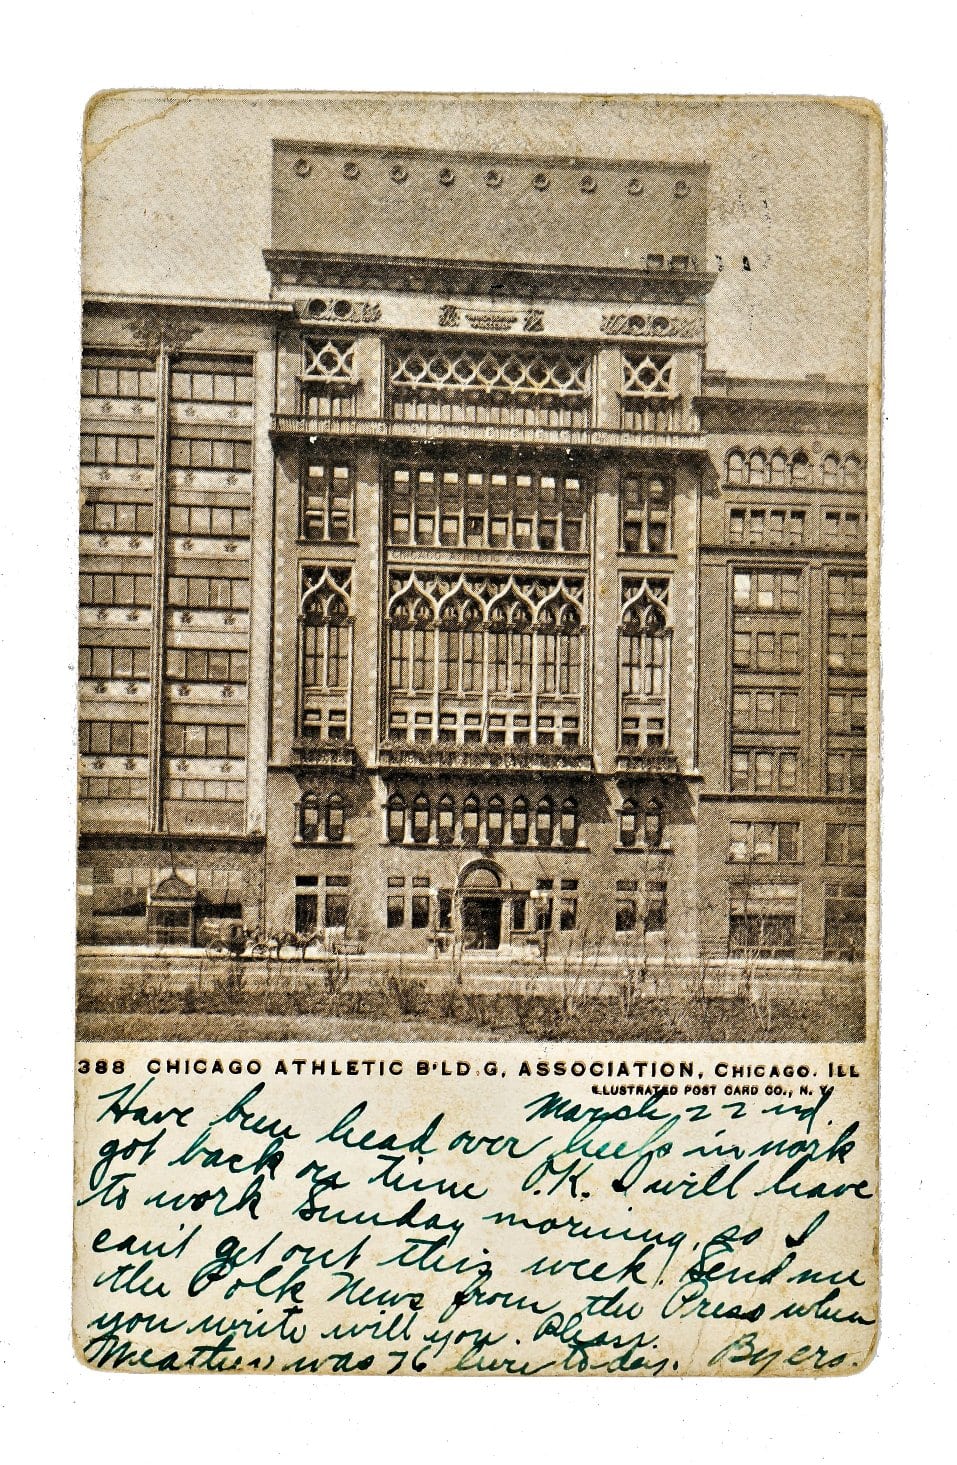 CHICAGO ATHLETIC ASSOCIATION
388 CHICAGO ATHLETIC B'LD.G, ASSOCIATION, CHICAGO. ILL
ILLUSTRATED POST CARD CO., N. Y.
March 22nd.
Have been head over heels in work
got back on time O.K. I will have
to work Sunday morning, so I
can't get out this week. Send me
the Polk News from the Press when
you write will you. Please.
Weather was 76 here today. Byers.